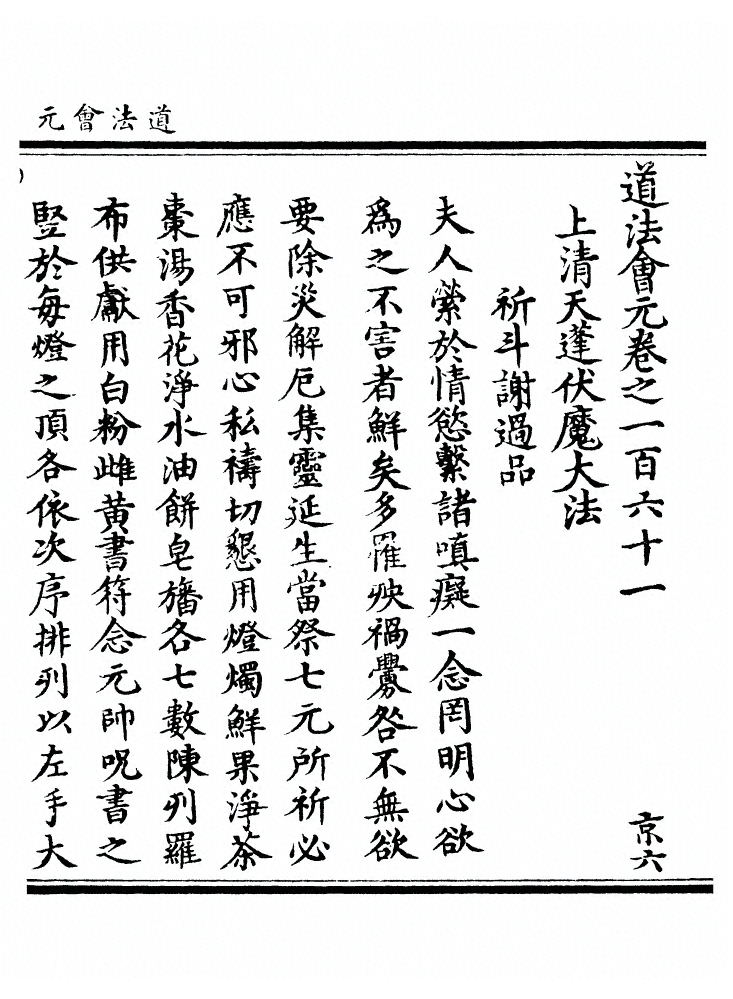 元會法道
道法會元卷之一百六十一
京六
上清天蓬伏魔大法
祈斗謝過品
夫人縈於情慾繫諸嗔癡一念罔明心欲
為之不害者鮮矣多罹殃禍釁咎不無欲
要除災解厄集靈延生當祭七元所祈必
應不可邪心私禱切懇用燈燭鮮果淨茶
棗湯香花淨水油餅皂旛各七數陳列羅
布供獻用白粉雌黃書符念元帥呪書之
竪於每燈之頂各依次序排列以左手大